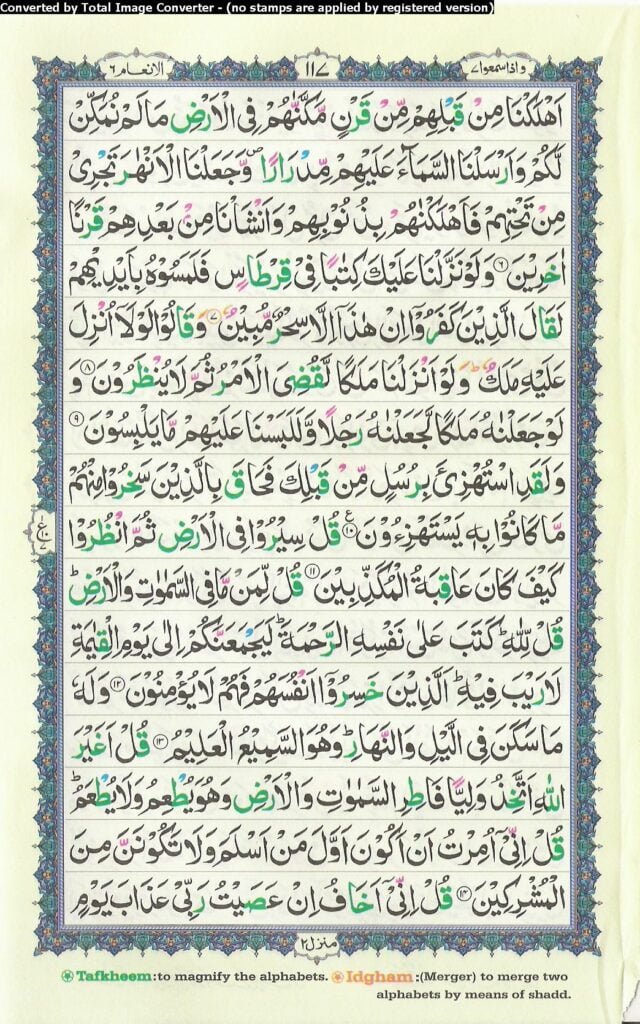 Converted by Total Image Converter - (no stamps are applied by registered version)
الانعام ٦
١١٧
واذاسمعوا ٧
اَهْلَكْنَا مِنْ قَبْلِهِمْ مِّنْ قَرْنٍ مَّكَّنّٰهُمْ فِی الْاَرْضِ مَا لَمْ نُمَكِّنْ
لَّكُمْ وَاَرْسَلْنَا السَّمَآءَ عَلَیْهِمْ مِّدْرَارًا ۪ وَّجَعَلْنَا الْاَنْهٰرَ تَجْرِیْ
مِنْ تَحْتِهِمْ فَاَهْلَكْنٰهُمْ بِذُنُوْبِهِمْ وَاَنْشَاْنَا مِنْۢ بَعْدِهِمْ قَرْنًا
اٰخَرِیْنَ ۶ وَلَوْ نَزَّلْنَا عَلَیْكَ كِتٰبًا فِیْ قِرْطَاسٍ فَلَمَسُوْهُ بِاَیْدِیْهِمْ
لَقَالَ الَّذِیْنَ كَفَرُوْۤا اِنْ هٰذَاۤ اِلَّا سِحْرٌ مُّبِیْنٌ ۷ وَقَالُوْا لَوْلَاۤ اُنْزِلَ
عَلَیْهِ مَلَكٌ ؕ وَلَوْ اَنْزَلْنَا مَلَكًا لَّقُضِیَ الْاَمْرُ ثُمَّ لَا یُنْظَرُوْنَ ۸ وَ
لَوْ جَعَلْنٰهُ مَلَكًا لَّجَعَلْنٰهُ رَجُلًا وَّلَلَبَسْنَا عَلَیْهِمْ مَّا یَلْبِسُوْنَ ۹
وَلَقَدِ اسْتُهْزِئَ بِرُسُلٍ مِّنْ قَبْلِكَ فَحَاقَ بِالَّذِیْنَ سَخِرُوْا مِنْهُمْ
مَّا كَانُوْا بِهٖ یَسْتَهْزِءُوْنَ ۱۰ ع قُلْ سِیْرُوْا فِی الْاَرْضِ ثُمَّ انْظُرُوْا
ع ۱۰ ۷
كَیْفَ كَانَ عَاقِبَةُ الْمُكَذِّبِیْنَ ۱۱ قُلْ لِّمَنْ مَّا فِی السَّمٰوٰتِ وَالْاَرْضِ ؕ
قُلْ لِّلّٰهِ ؕ كَتَبَ عَلٰی نَفْسِهِ الرَّحْمَةَ ؕ لَیَجْمَعَنَّكُمْ اِلٰی یَوْمِ الْقِیٰمَةِ
لَا رَیْبَ فِیْهِ ؕ اَلَّذِیْنَ خَسِرُوْۤا اَنْفُسَهُمْ فَهُمْ لَا یُؤْمِنُوْنَ ۱۲ وَلَهٗ
مَا سَكَنَ فِی الَّیْلِ وَالنَّهَارِ ؕ وَهُوَ السَّمِیْعُ الْعَلِیْمُ ۱۳ قُلْ اَغَیْرَ
اللّٰهِ اَتَّخِذُ وَلِیًّا فَاطِرِ السَّمٰوٰتِ وَالْاَرْضِ وَهُوَ یُطْعِمُ وَلَا یُطْعَمُ ؕ
قُلْ اِنِّیْۤ اُمِرْتُ اَنْ اَكُوْنَ اَوَّلَ مَنْ اَسْلَمَ وَلَا تَكُوْنَنَّ مِنَ
الْمُشْرِكِیْنَ ۱۴ قُلْ اِنِّیْۤ اَخَافُ اِنْ عَصَیْتُ رَبِّیْ عَذَابَ یَوْمٍ
منزل ۲
Tafkheem:to magnify the alphabets. Idgham :(Merger) to merge two
alphabets by means of shadd.